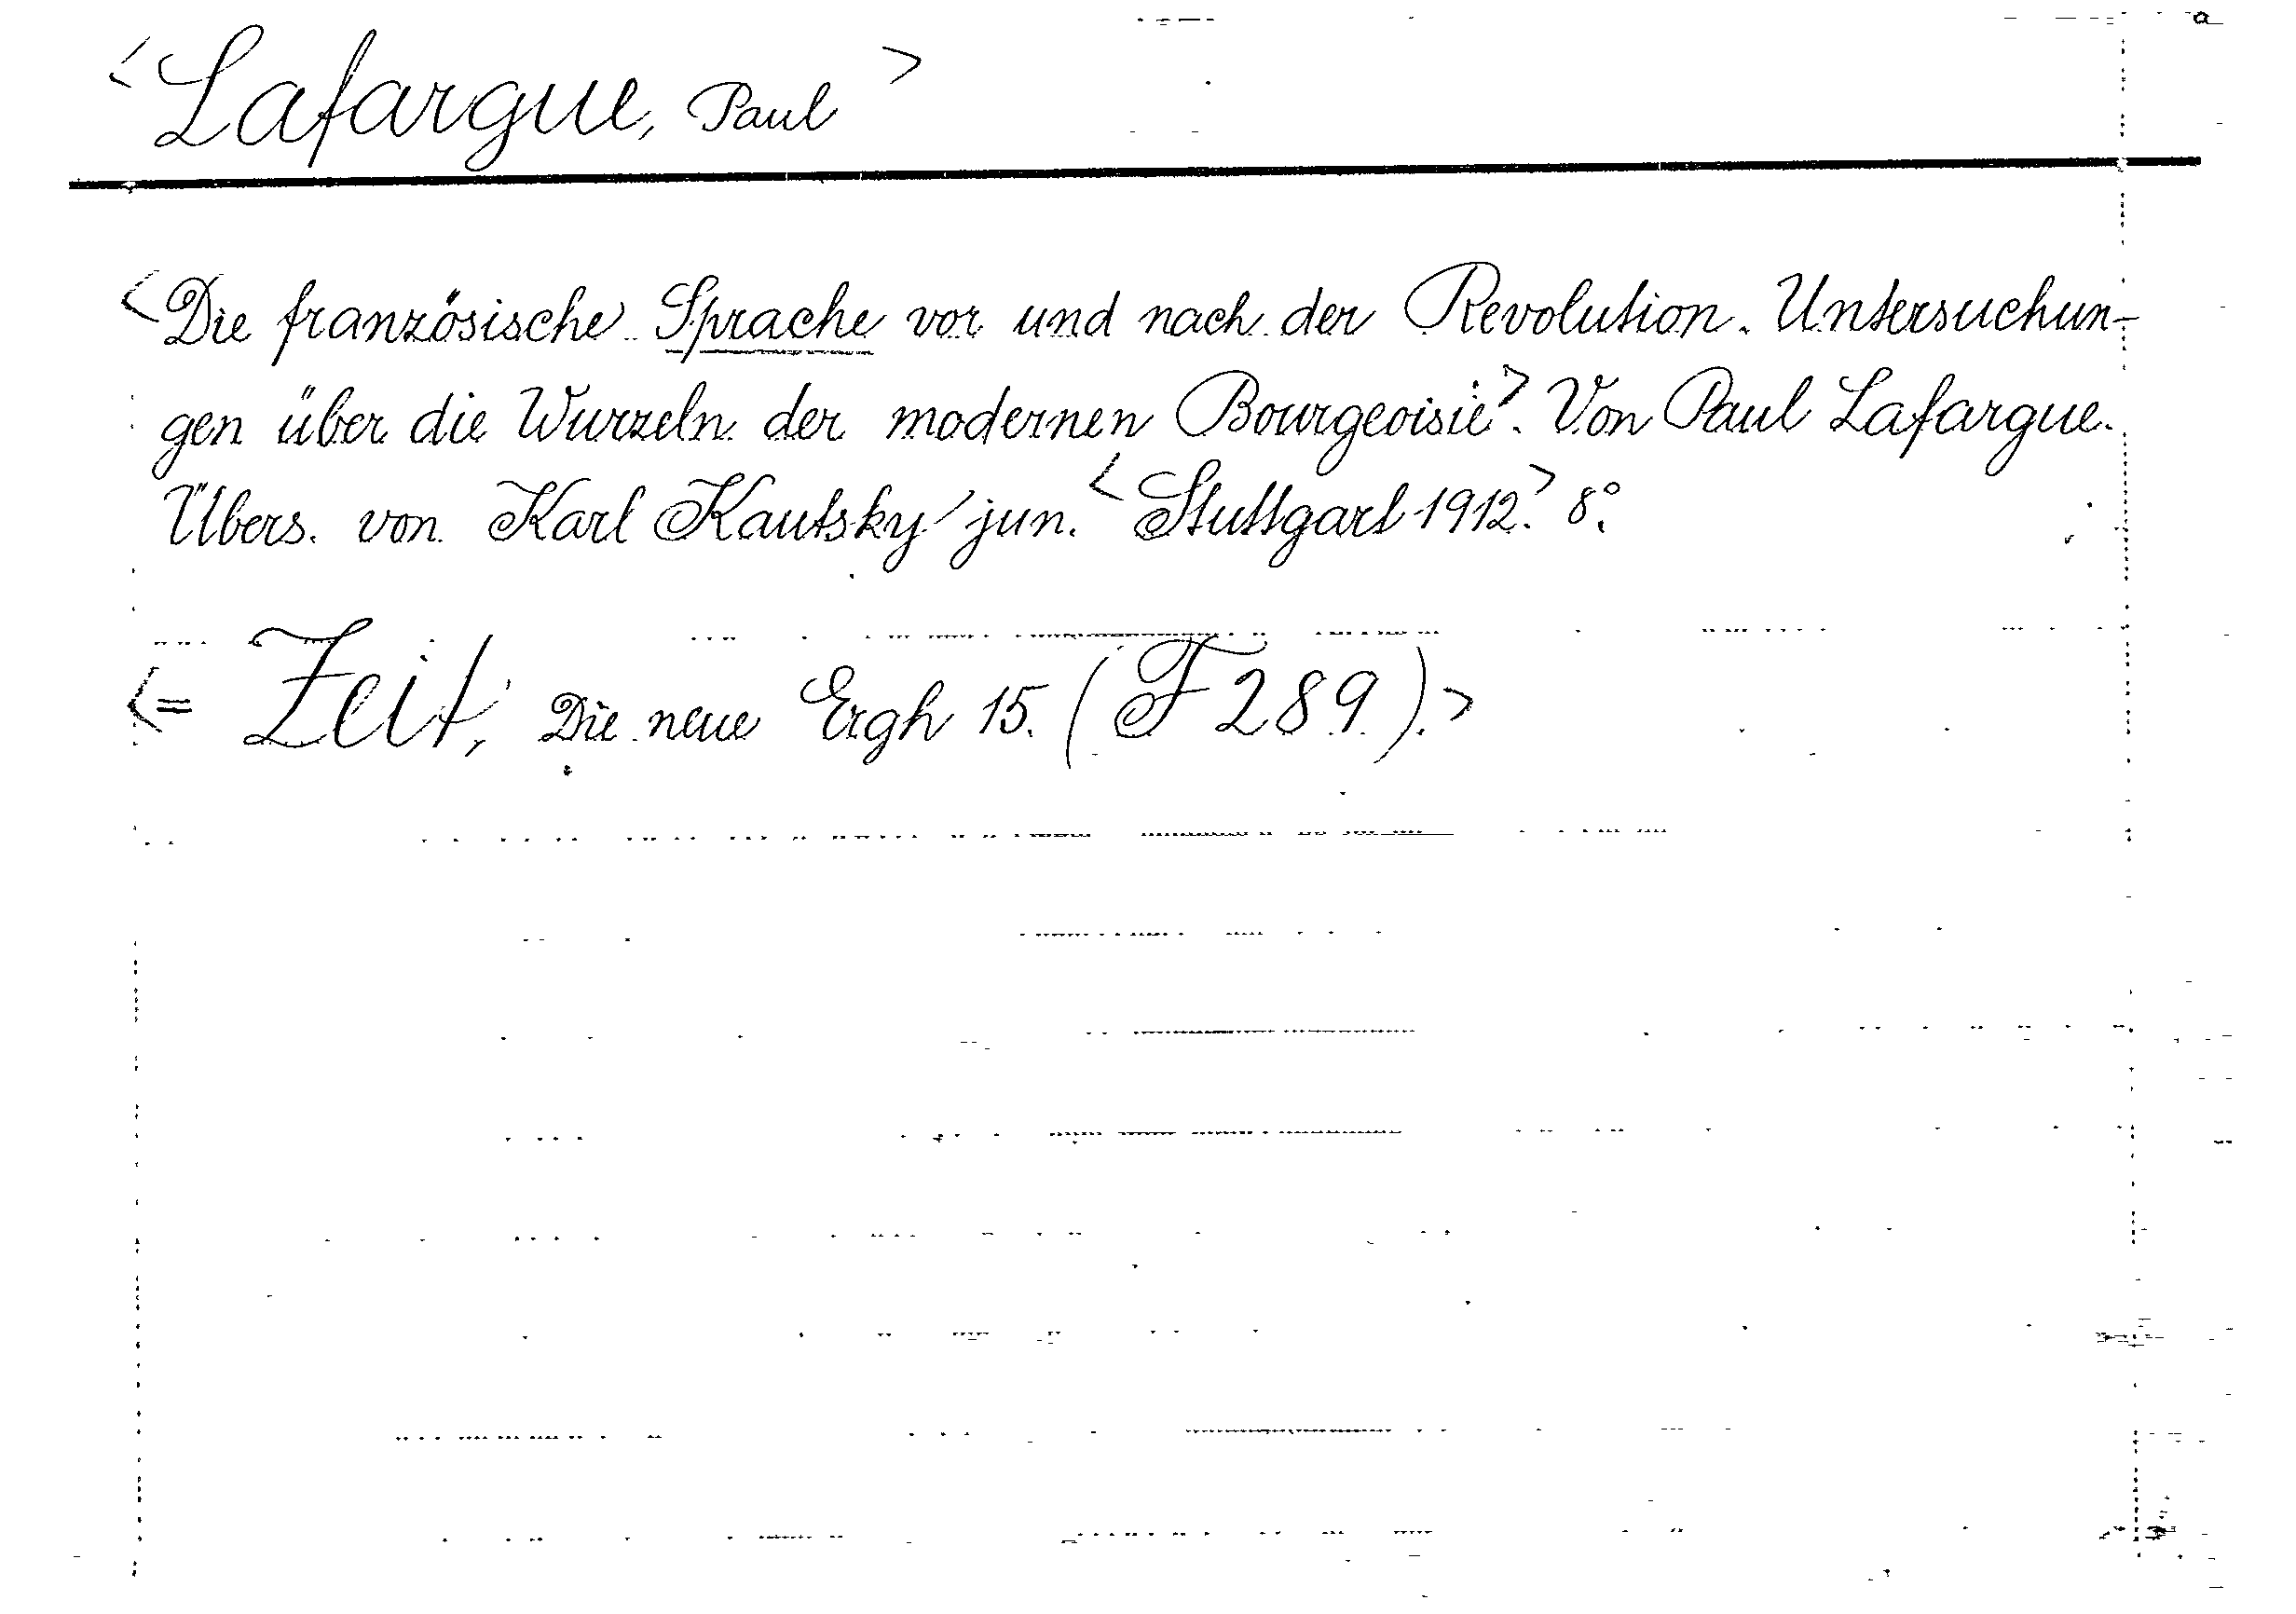 <Lafargue, Paul>
<Die französische Sprache vor und nach der Revolution. Untersuchun-
gen über die Wurzeln der modernen Bourgeoisie>. Von Paul Lafargue.
Übers. von Karl Kautsky jun. <Stuttgart 1912.> 8°.
<= Zeit, Die neue Ergh 15. (F 289).>